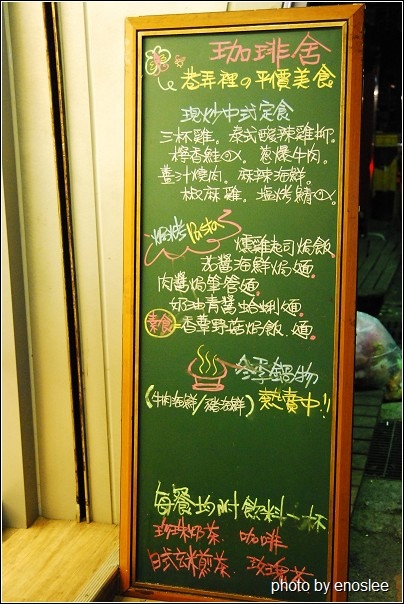 珈琲舍
巷弄裡の平價美食
現炒中式定食
三杯雞。泰式酸辣雞柳。
檸香鮭魚。蔥爆牛肉。
薑汁燒肉。麻辣海鮮。
椒麻雞。塩烤鯖魚。
焗烤Pasta
燻雞起司焗飯.
茄醬海鮮焗麵.
肉醬焗筆管麵.
奶油青醬蛤蜊麵.
素食=香草野菇焗飯、麵.
冬季鍋物
(牛肉海鮮/豬海鮮) 熱賣中!!
每餐均附飲料一杯
珍珠奶茶 咖啡
日式玄米煎茶 玫瑰茶
photo by enoslee